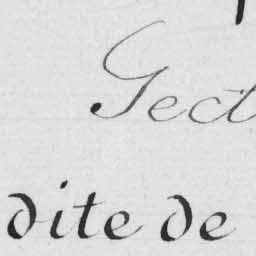 Sect
dite de